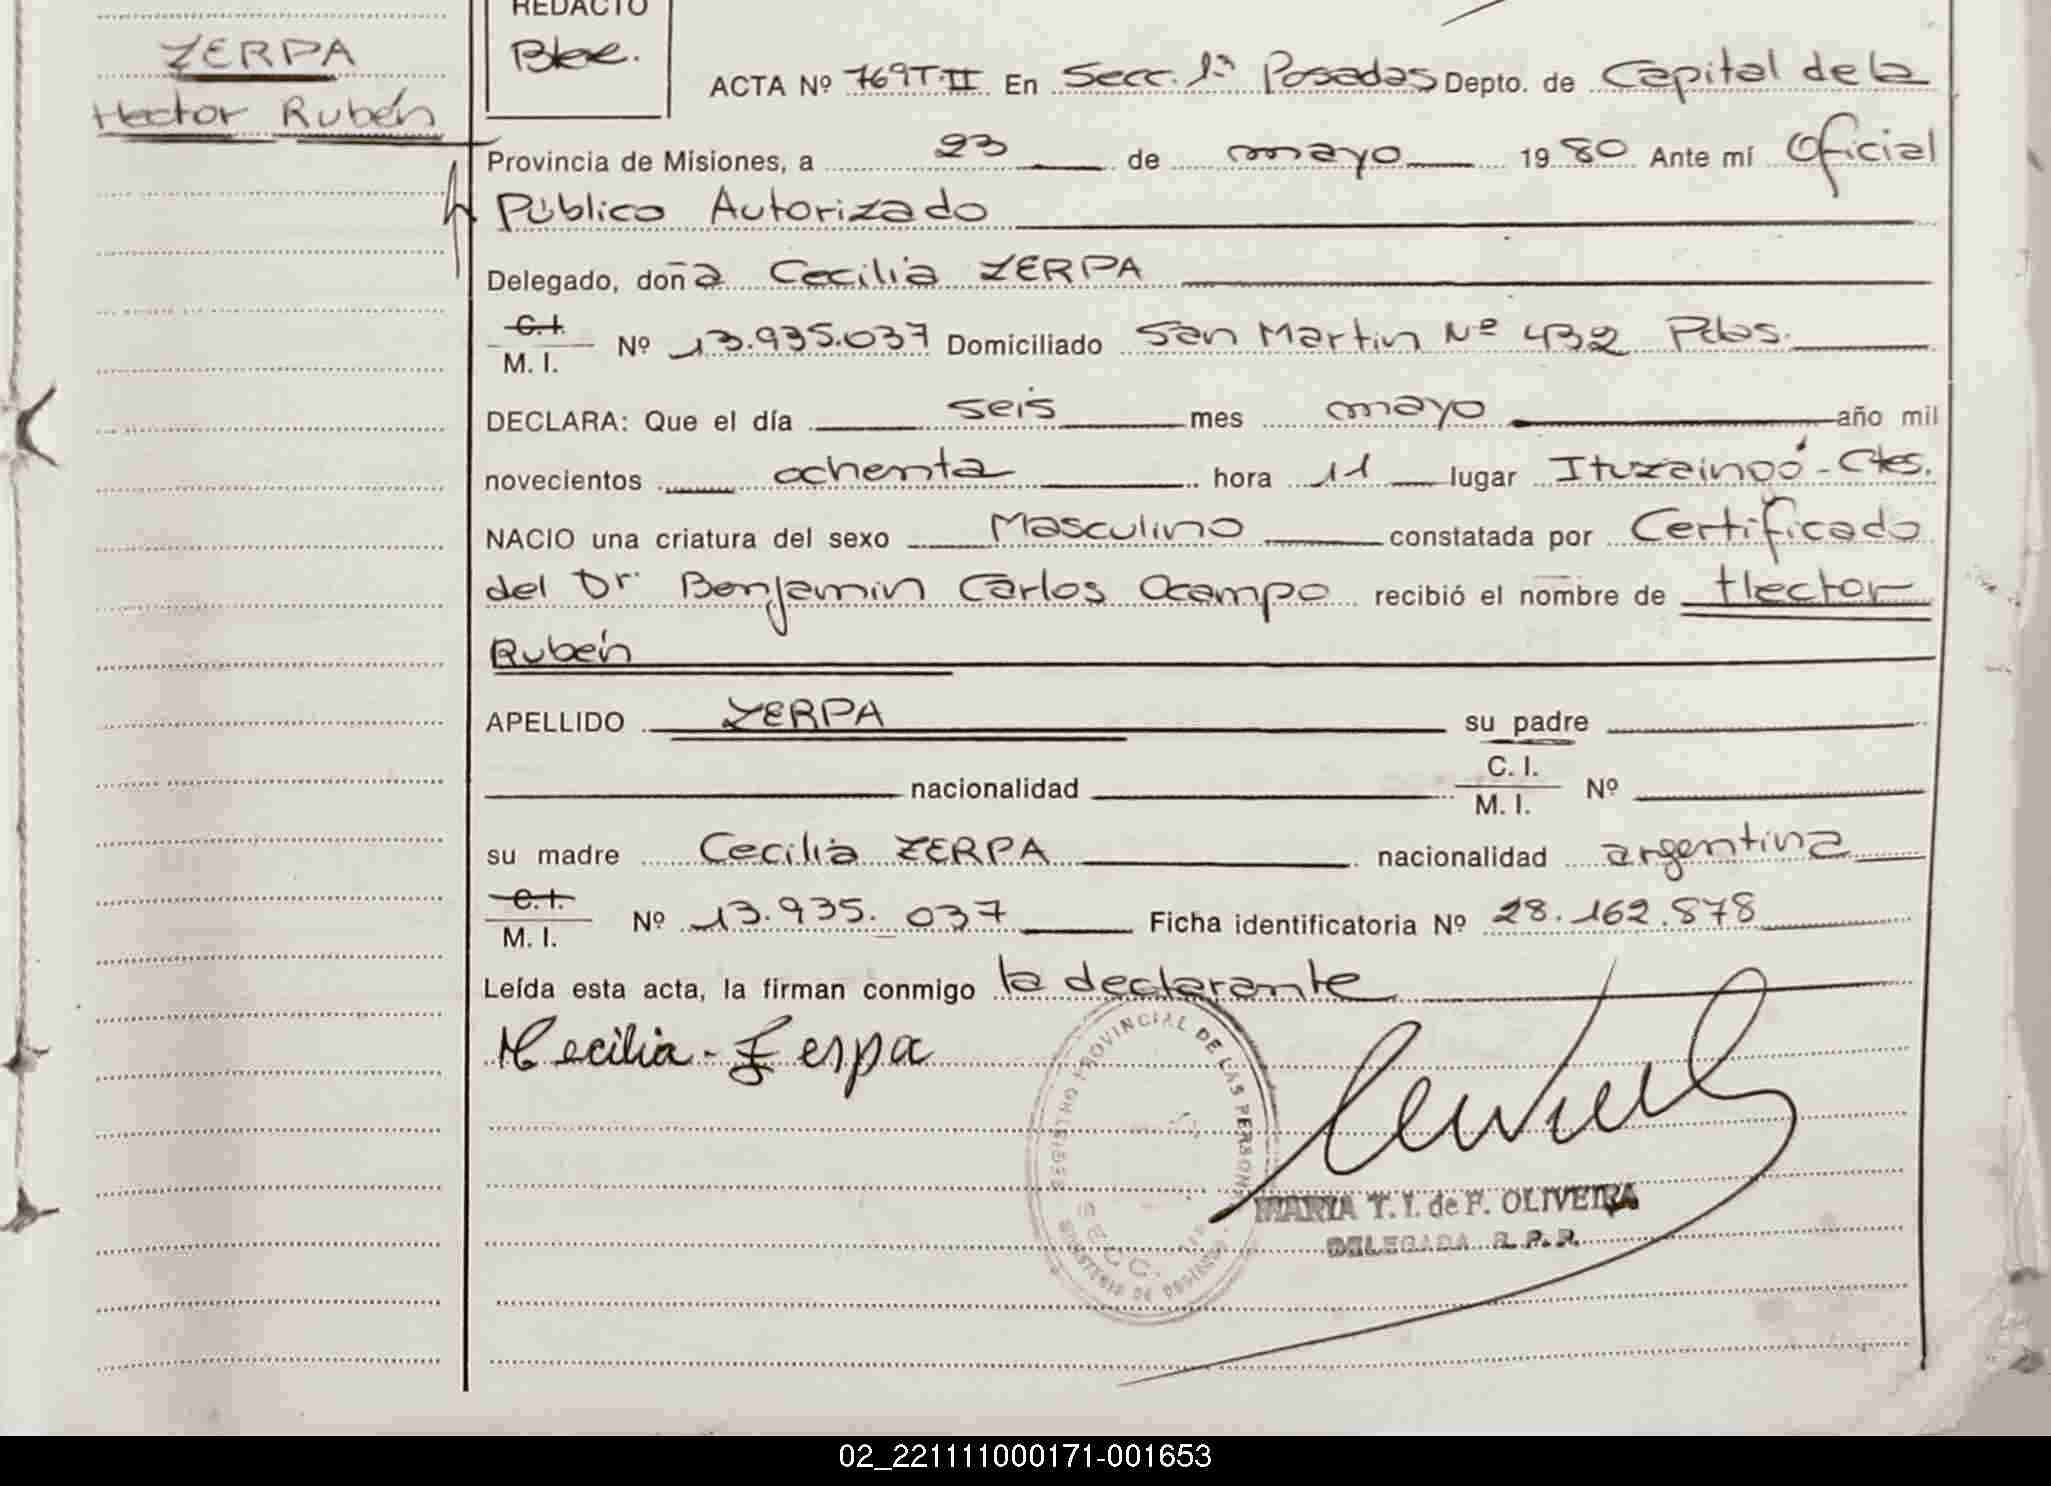 REDACTO
ZERPA
Hector Rubén
ACTA Nº 769T·II En Secc. 1ª Posadas Depto. de Capital de la
Provincia de Misiones, a 23 de mayo 1980 Ante mí Oficial
Público Autorizado
Delegado, doña Cecilia ZERPA
C.I.
M. I. Nº 13.935.037 Domiciliado San Martin Nº 432 Pdas.
DECLARA: Que el día seis mes mayo año mil
novecientos ochenta hora 11 lugar Ituzaingó - Ctes.
NACIO una criatura del sexo Masculino constatada por Certificado
del Dr. Benjamin Carlos Ocampo recibió el nombre de Hector
Rubén
APELLIDO ZERPA su padre
nacionalidad C. I. Nº
M. I.
su madre Cecilia ZERPA nacionalidad argentina
C.I.
M. I. Nº 13.935.037 Ficha identificatoria Nº 28.162.878
Leída esta acta, la firman conmigo la declarante
Cecilia - Zerpa
REGISTRO PROVINCIAL DE LAS PERSONAS
SECC.
MINISTERIO DE GOBIERNO
MARIA T. I. de F. OLIVEIRA
DELEGADA R. P. P.
02_221111000171-001653